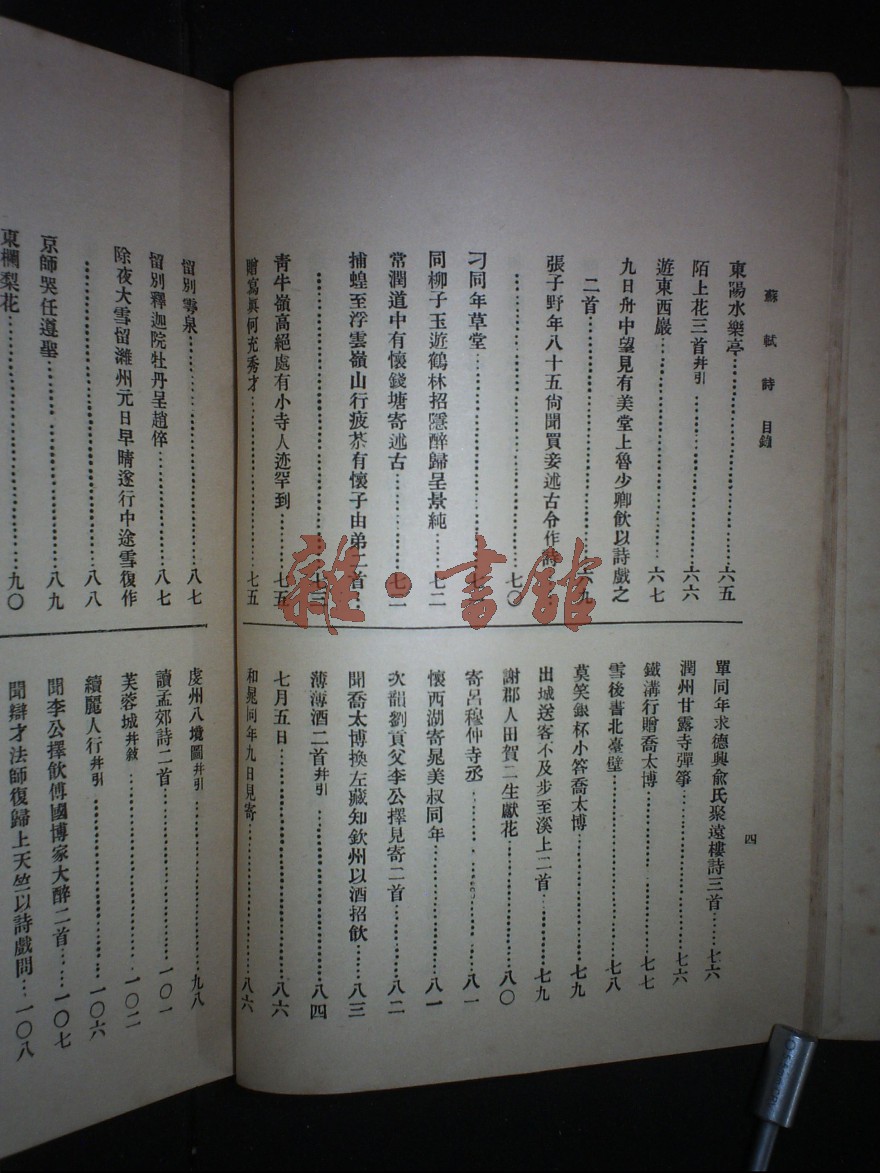 蘇軾詩 目錄
四
東陽水樂亭……六五
陌上花三首并引……六六
遊東西巖……六七
九日舟中望見有美堂上魯少卿飲以詩戲之
二首……六九
張子野年八十五尙聞買妾述古令作詩
……七〇
刁同年草堂……
同柳子玉遊鶴林招隱醉歸呈景純……七二
常潤道中有懷錢塘寄述古……七二
捕蝗至浮雲嶺山行疲苶有懷子由弟二首……
……七三
青牛嶺高絕處有小寺人迹罕到……七五
贈寫眞何充秀才……七五
單同年求德興俞氏聚遠樓詩三首……七六
潤州甘露寺彈箏……七六
鐵溝行贈喬太博……七七
雪後書北臺壁……七八
莫笑銀杯小答喬太博……七九
出城送客不及步至溪上二首……七九
謝郡人田賀二生獻花……八〇
寄呂穆仲寺丞……八一
懷西湖寄晁美叔同年……八一
次韻劉貢父李公擇見寄二首……八二
聞喬太博換左藏知欽州以酒招飲……八三
薄薄酒二首并引……八四
七月五日……八六
和晁同年九日見寄……八六
留別雩泉……八七
留別釋迦院牡丹呈趙倅……八七
除夜大雪留濰州元日早晴遂行中途雪復作
……八八
京師哭任遵聖……八九
東欄梨花……九〇
虔州八境圖并引……九八
讀孟郊詩二首……一〇一
芙蓉城并敘……一〇二
續麗人行并引……一〇六
聞李公擇飲傅國博家大醉二首……一〇七
聞辯才法師復歸上天竺以詩戲問……一〇八
雜·書館